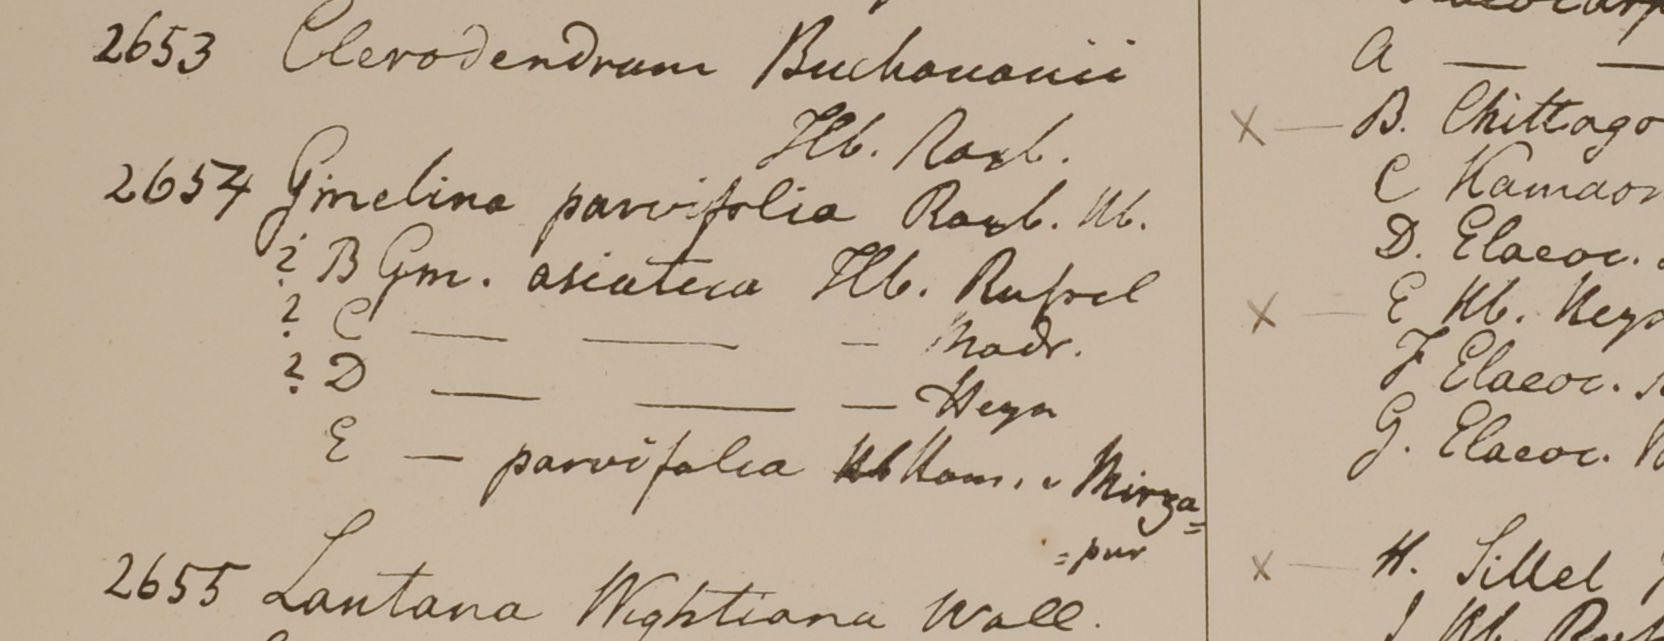 2653 Clerodendrum Buchananii
Hb. Roxb.
2654 Gmelina parvifolia Roxb. Hb.
? B Gm. asiatica Hb. Russel
? C — — — Madr.
? D — — — Heyn
E — parvifolia Ham. Mirza=
=pur
2655 Lantana Wightiana Wall.
A — —
x — B. Chittago
C Kamaon
D. Elaeoc.
x — E Hb. Heyn
F Elaeoc.
G. Elaeoc.
x — H. Sillet
I Hb.